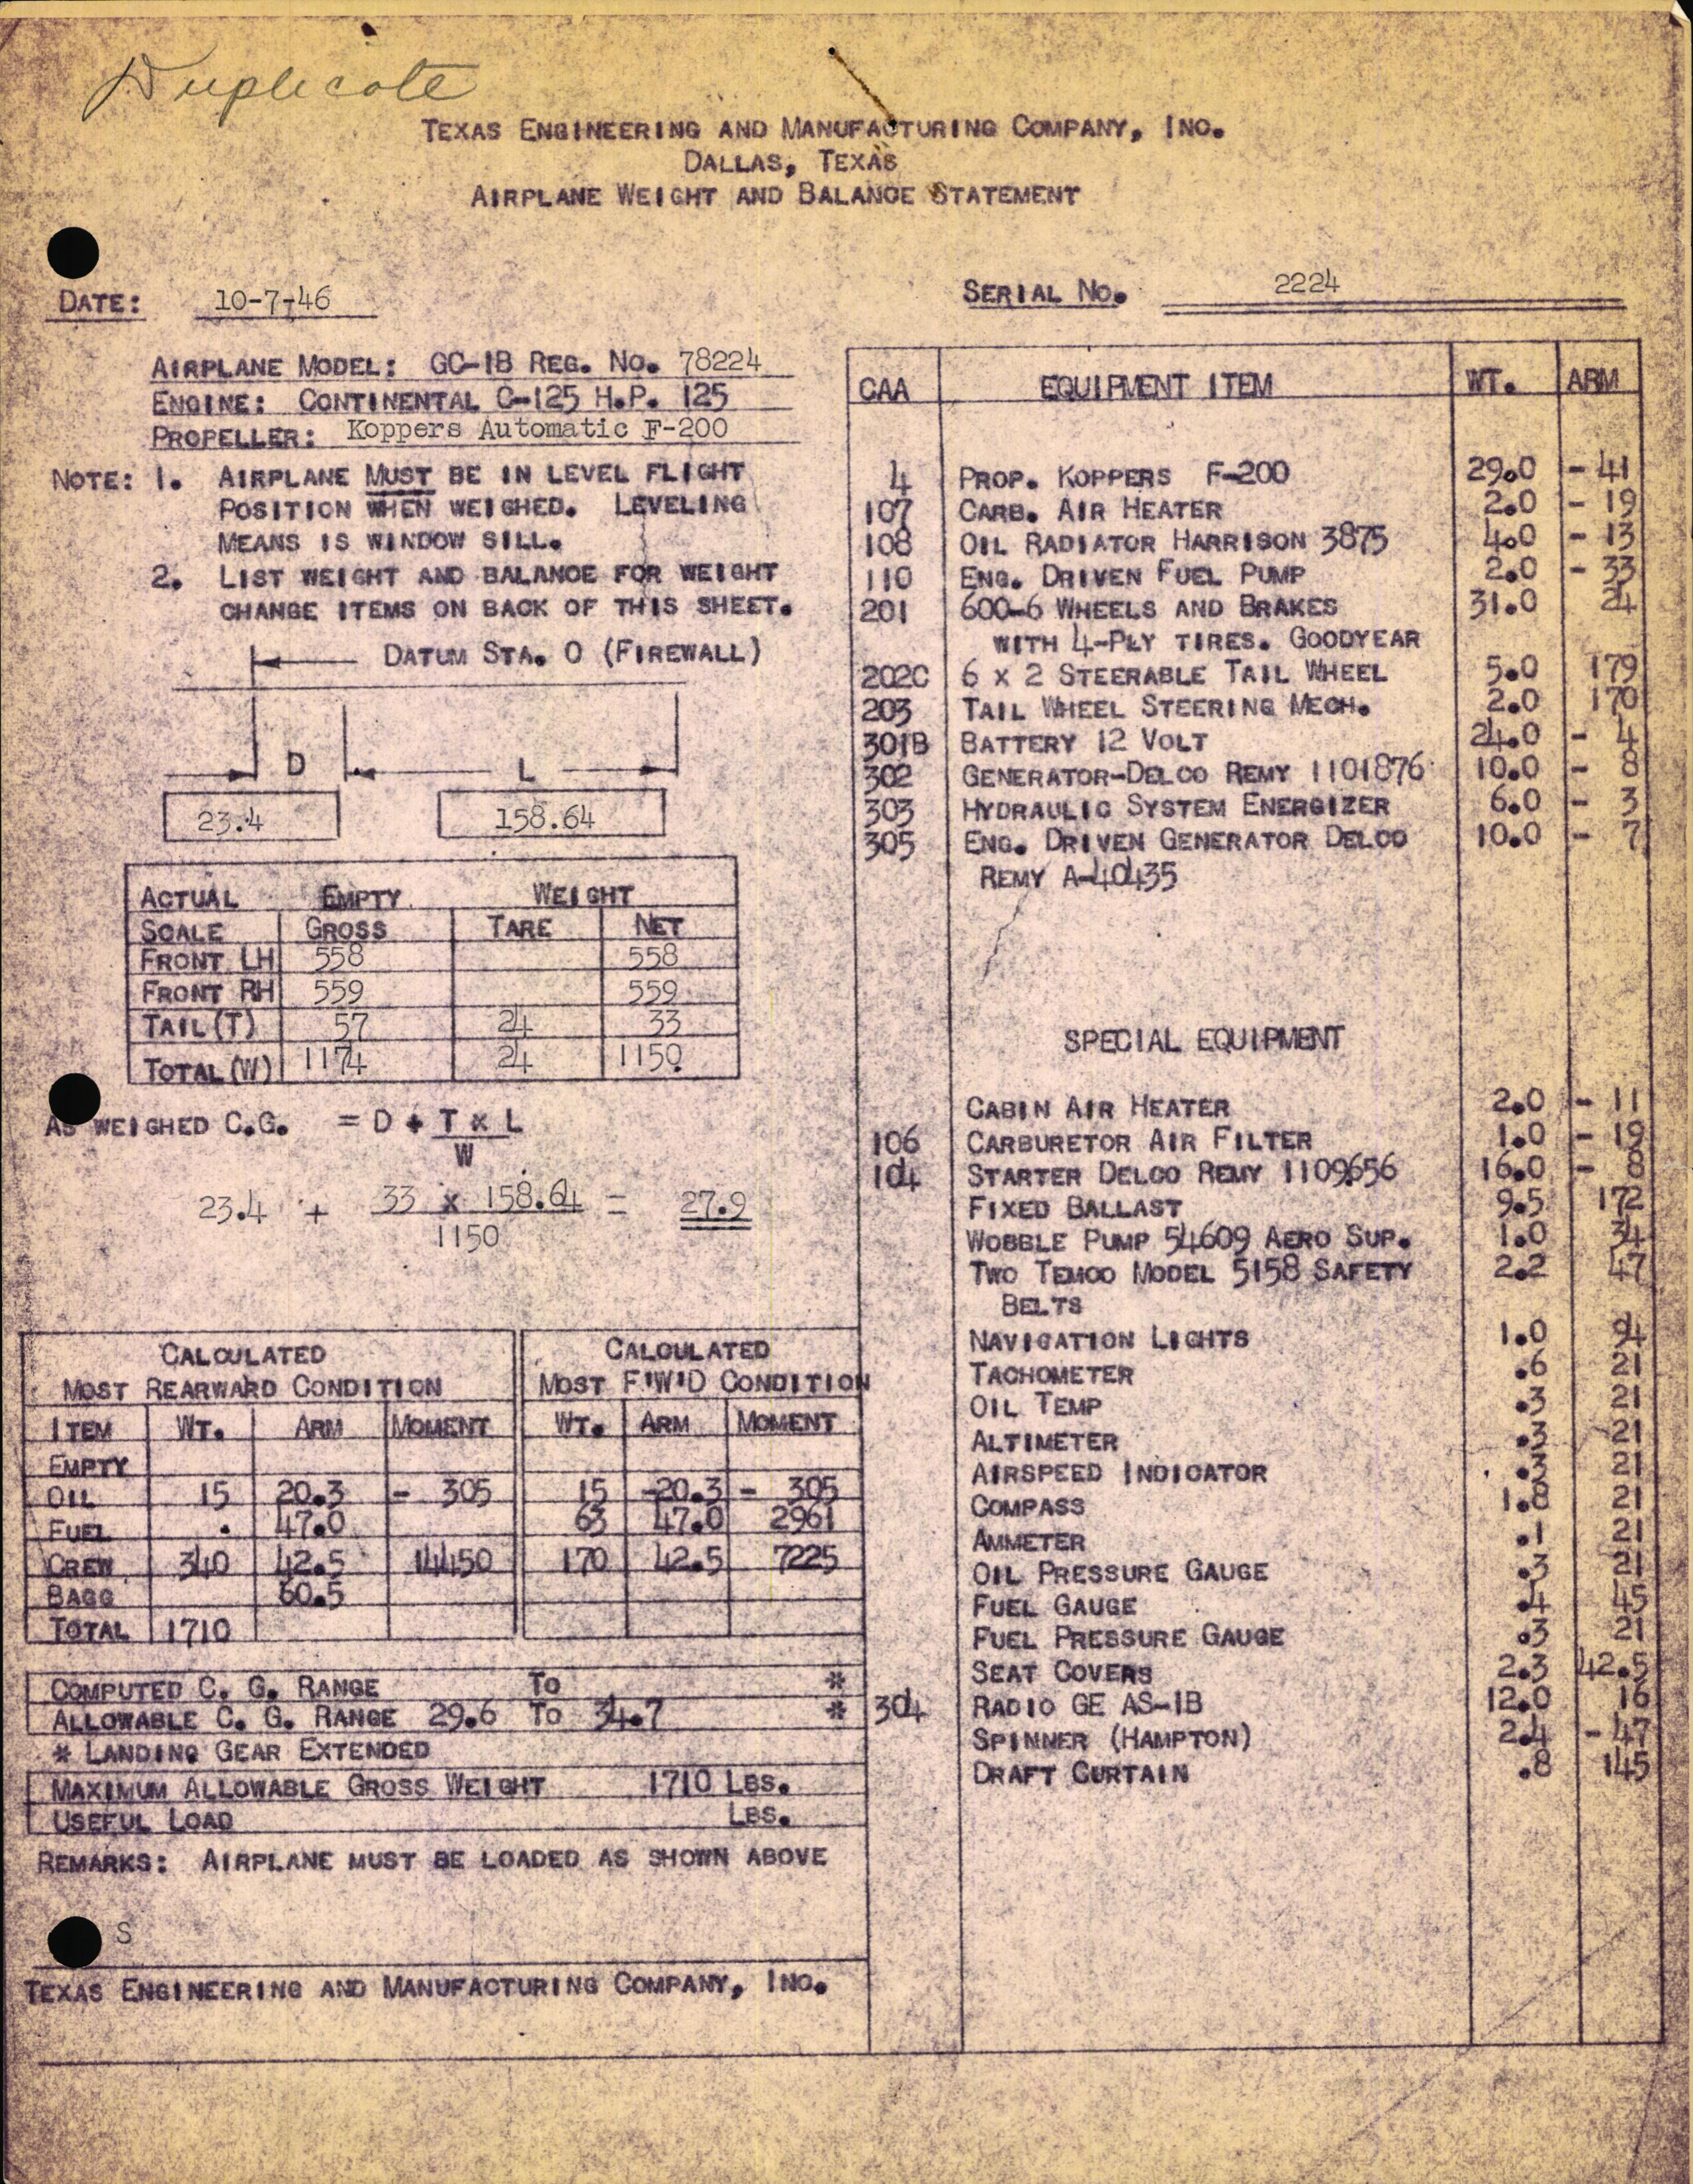 Duplicate
TEXAS ENGINEERING AND MANUFACTURING COMPANY, INC.
DALLAS, TEXAS
AIRPLANE WEIGHT AND BALANCE STATEMENT
DATE: 10-7-46
SERIAL NO. 2224
AIRPLANE MODEL: GC-1B REG. NO. 78224
ENGINE: CONTINENTAL C-125 H.P. 125
PROPELLER: Koppers Automatic F-200
NOTE: 1. AIRPLANE MUST BE IN LEVEL FLIGHT
POSITION WHEN WEIGHED. LEVELING
MEANS IS WINDOW SILL.
2. LIST WEIGHT AND BALANCE FOR WEIGHT
CHANGE ITEMS ON BACK OF THIS SHEET.
DATUM STA. 0 (FIREWALL)
D L
23.4 158.64
ACTUAL EMPTY WEIGHT
SCALE GROSS TARE NET
FRONT LH 558 558
FRONT RH 559 559
TAIL (T) 57 24 33
TOTAL (W) 1174 24 1150
AS WEIGHED C.G. = D + T x L
W
23.4 + 33 x 158.64 = 27.9
1150
CALCULATED
MOST REARWARD CONDITION
CALCULATED
MOST F'W'D CONDITION
ITEM WT. ARM MOMENT WT. ARM MOMENT
EMPTY
OIL 15 20.3 - 305 15 -20.3 - 305
FUEL . 47.0 63 47.0 2961
CREW 340 42.5 14450 170 42.5 7225
BAGG 60.5
TOTAL 1710
COMPUTED C. G. RANGE TO *
ALLOWABLE C. G. RANGE 29.6 TO 34.7 *
* LANDING GEAR EXTENDED
MAXIMUM ALLOWABLE GROSS WEIGHT 1710 LBS.
USEFUL LOAD LBS.
REMARKS: AIRPLANE MUST BE LOADED AS SHOWN ABOVE
S
TEXAS ENGINEERING AND MANUFACTURING COMPANY, INC.
CAA EQUIPMENT ITEM WT. ARM
4 PROP. KOPPERS F-200 29.0 - 41
107 CARB. AIR HEATER 2.0 - 19
108 OIL RADIATOR HARRISON 3875 4.0 - 13
110 ENG. DRIVEN FUEL PUMP 2.0 - 33
201 600-6 WHEELS AND BRAKES 31.0 24
WITH 4-PLY TIRES. GOODYEAR
202C 6 x 2 STEERABLE TAIL WHEEL 5.0 179
203 TAIL WHEEL STEERING MECH. 2.0 170
301B BATTERY 12 VOLT 24.0 - 4
302 GENERATOR-DELCO REMY 1101876 10.0 - 8
303 HYDRAULIC SYSTEM ENERGIZER 6.0 - 3
305 ENG. DRIVEN GENERATOR DELCO 10.0 - 7
REMY A-40435
SPECIAL EQUIPMENT
CABIN AIR HEATER 2.0 - 11
106 CARBURETOR AIR FILTER 1.0 - 19
104 STARTER DELCO REMY 1109656 16.0 - 8
FIXED BALLAST 9.5 172
WOBBLE PUMP 54609 AERO SUP. 1.0 34
TWO TEMCO MODEL 5158 SAFETY 2.2 47
BELTS
NAVIGATION LIGHTS 1.0 94
TACHOMETER .6 21
OIL TEMP .3 21
ALTIMETER .3 21
AIRSPEED INDICATOR .3 21
COMPASS 1.8 21
AMMETER .1 21
OIL PRESSURE GAUGE .3 21
FUEL GAUGE .4 45
FUEL PRESSURE GAUGE .3 21
SEAT COVERS 2.3 42.5
304 RADIO GE AS-1B 12.0 16
SPINNER (HAMPTON) 2.4 - 47
DRAFT CURTAIN .8 145